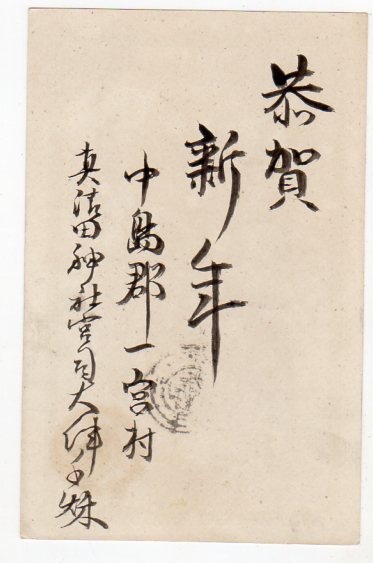 恭賀
新年
中島郡一宮村
真清田神社宮司大津千秋